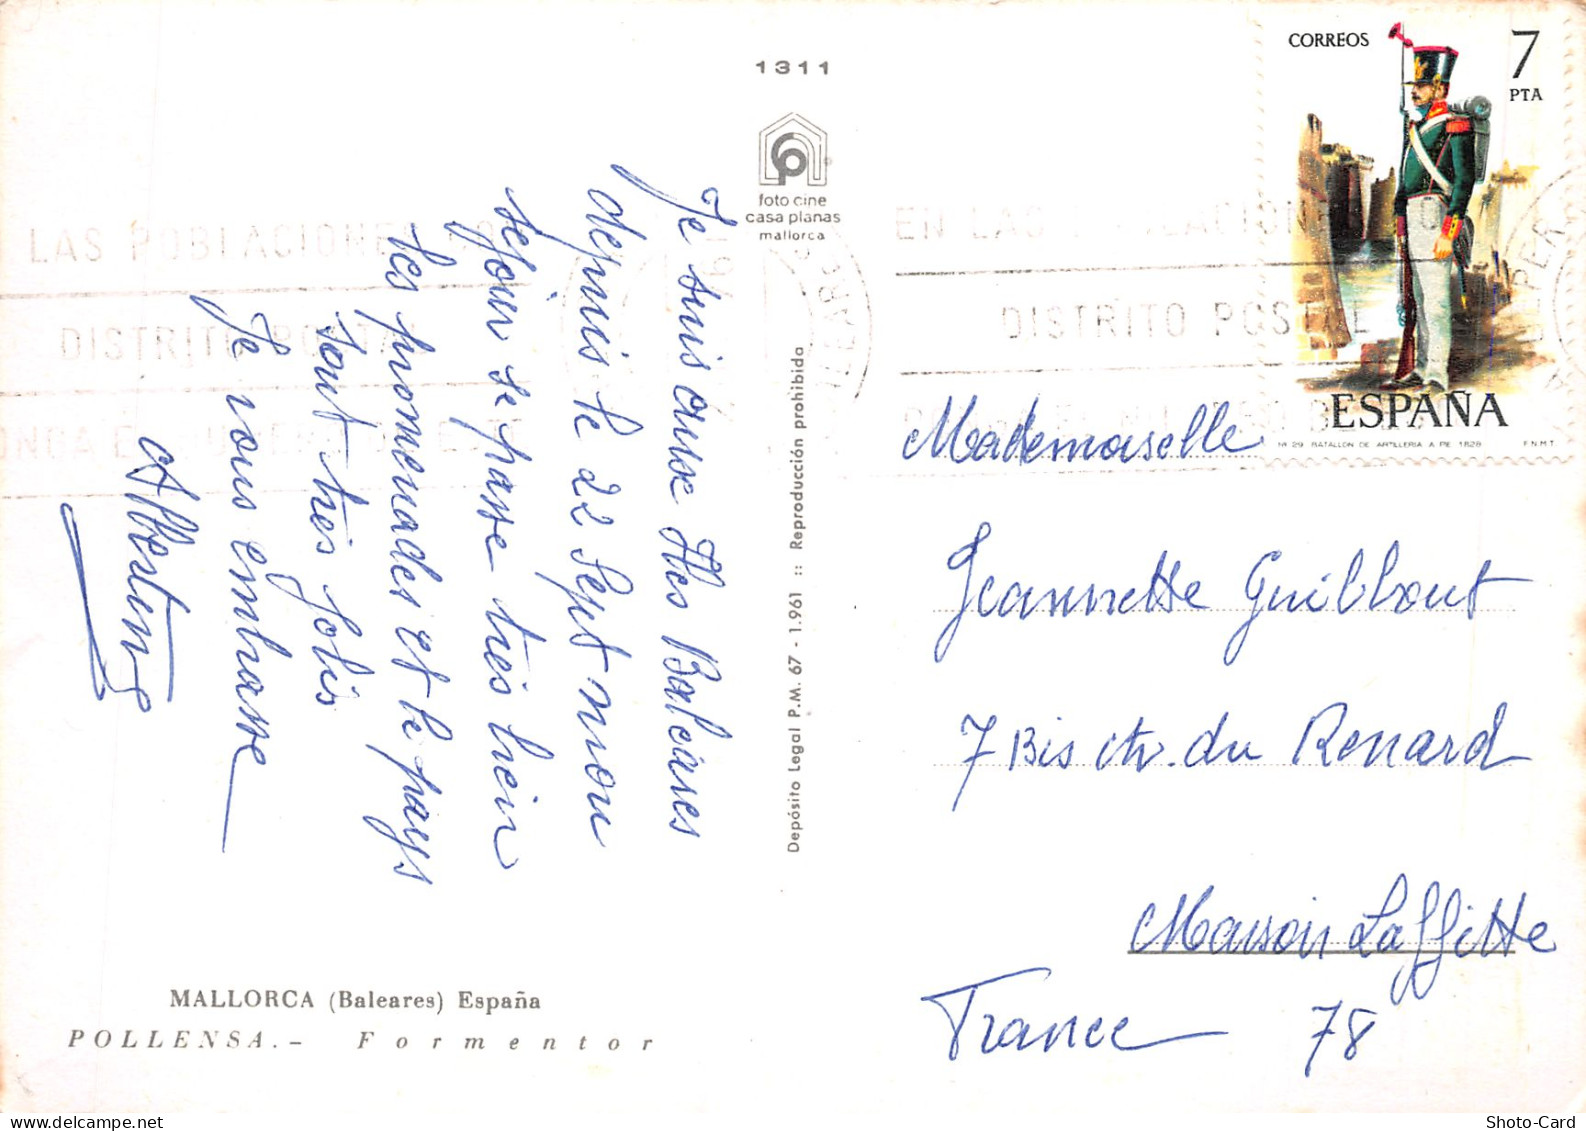 Je suis aux Iles Baléares
depuis le 22 Sept mon
séjour se passe très bien
les promenades et le pays
sont très jolis
Je vous embrasse
Albertine
MALLORCA (Baleares) España
POLLENSA.- Formentor
1311
foto cine
casa planas
mallorca
Depósito Legal P.M. 67 - 1.961 :: Reproducción prohibida
CORREOS
7
PTA
ESPAÑA
Nº 29 BATALLON DE ARTILLERIA A PIE 1828 F.N.M.T.
LAS POBLACIONES
DISTRITO POSTAL
EN LAS POBLACIONES
DISTRITO POSTAL
Mademoiselle
Jeannette Guilbbout
7 Bis ch. du Renard
Maison Laffitte
France 78
Shoto-Card